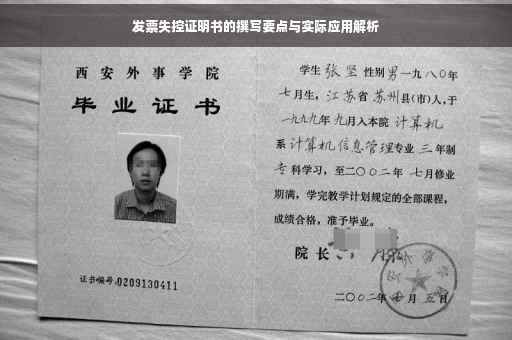 发票失控证明书的撰写要点与实际应用解析
西安外事学院
毕业证书
证书编号:0209130411
学生 张坚 性别 男 一九八〇年
七月生，江苏省苏州县(市)人，于
一九九九年 九月入本院 计算机
系 计算机信息管理专业 三 年制
专科学习，至二〇〇二年 七月修业
期满，学完教学计划规定的全部课程，
成绩合格，准予毕业。
院长
二〇〇二年 月 五日